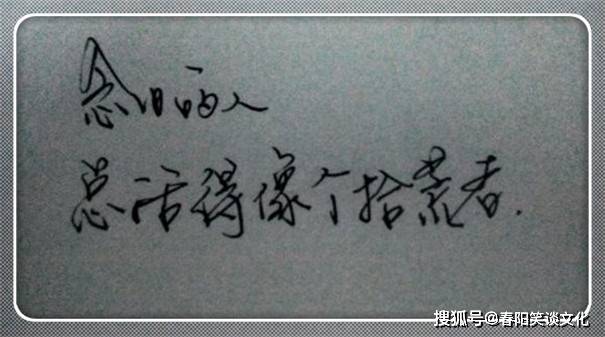 念旧的人
总活得像个拾荒者.
搜狐号@春阳笑谈文化